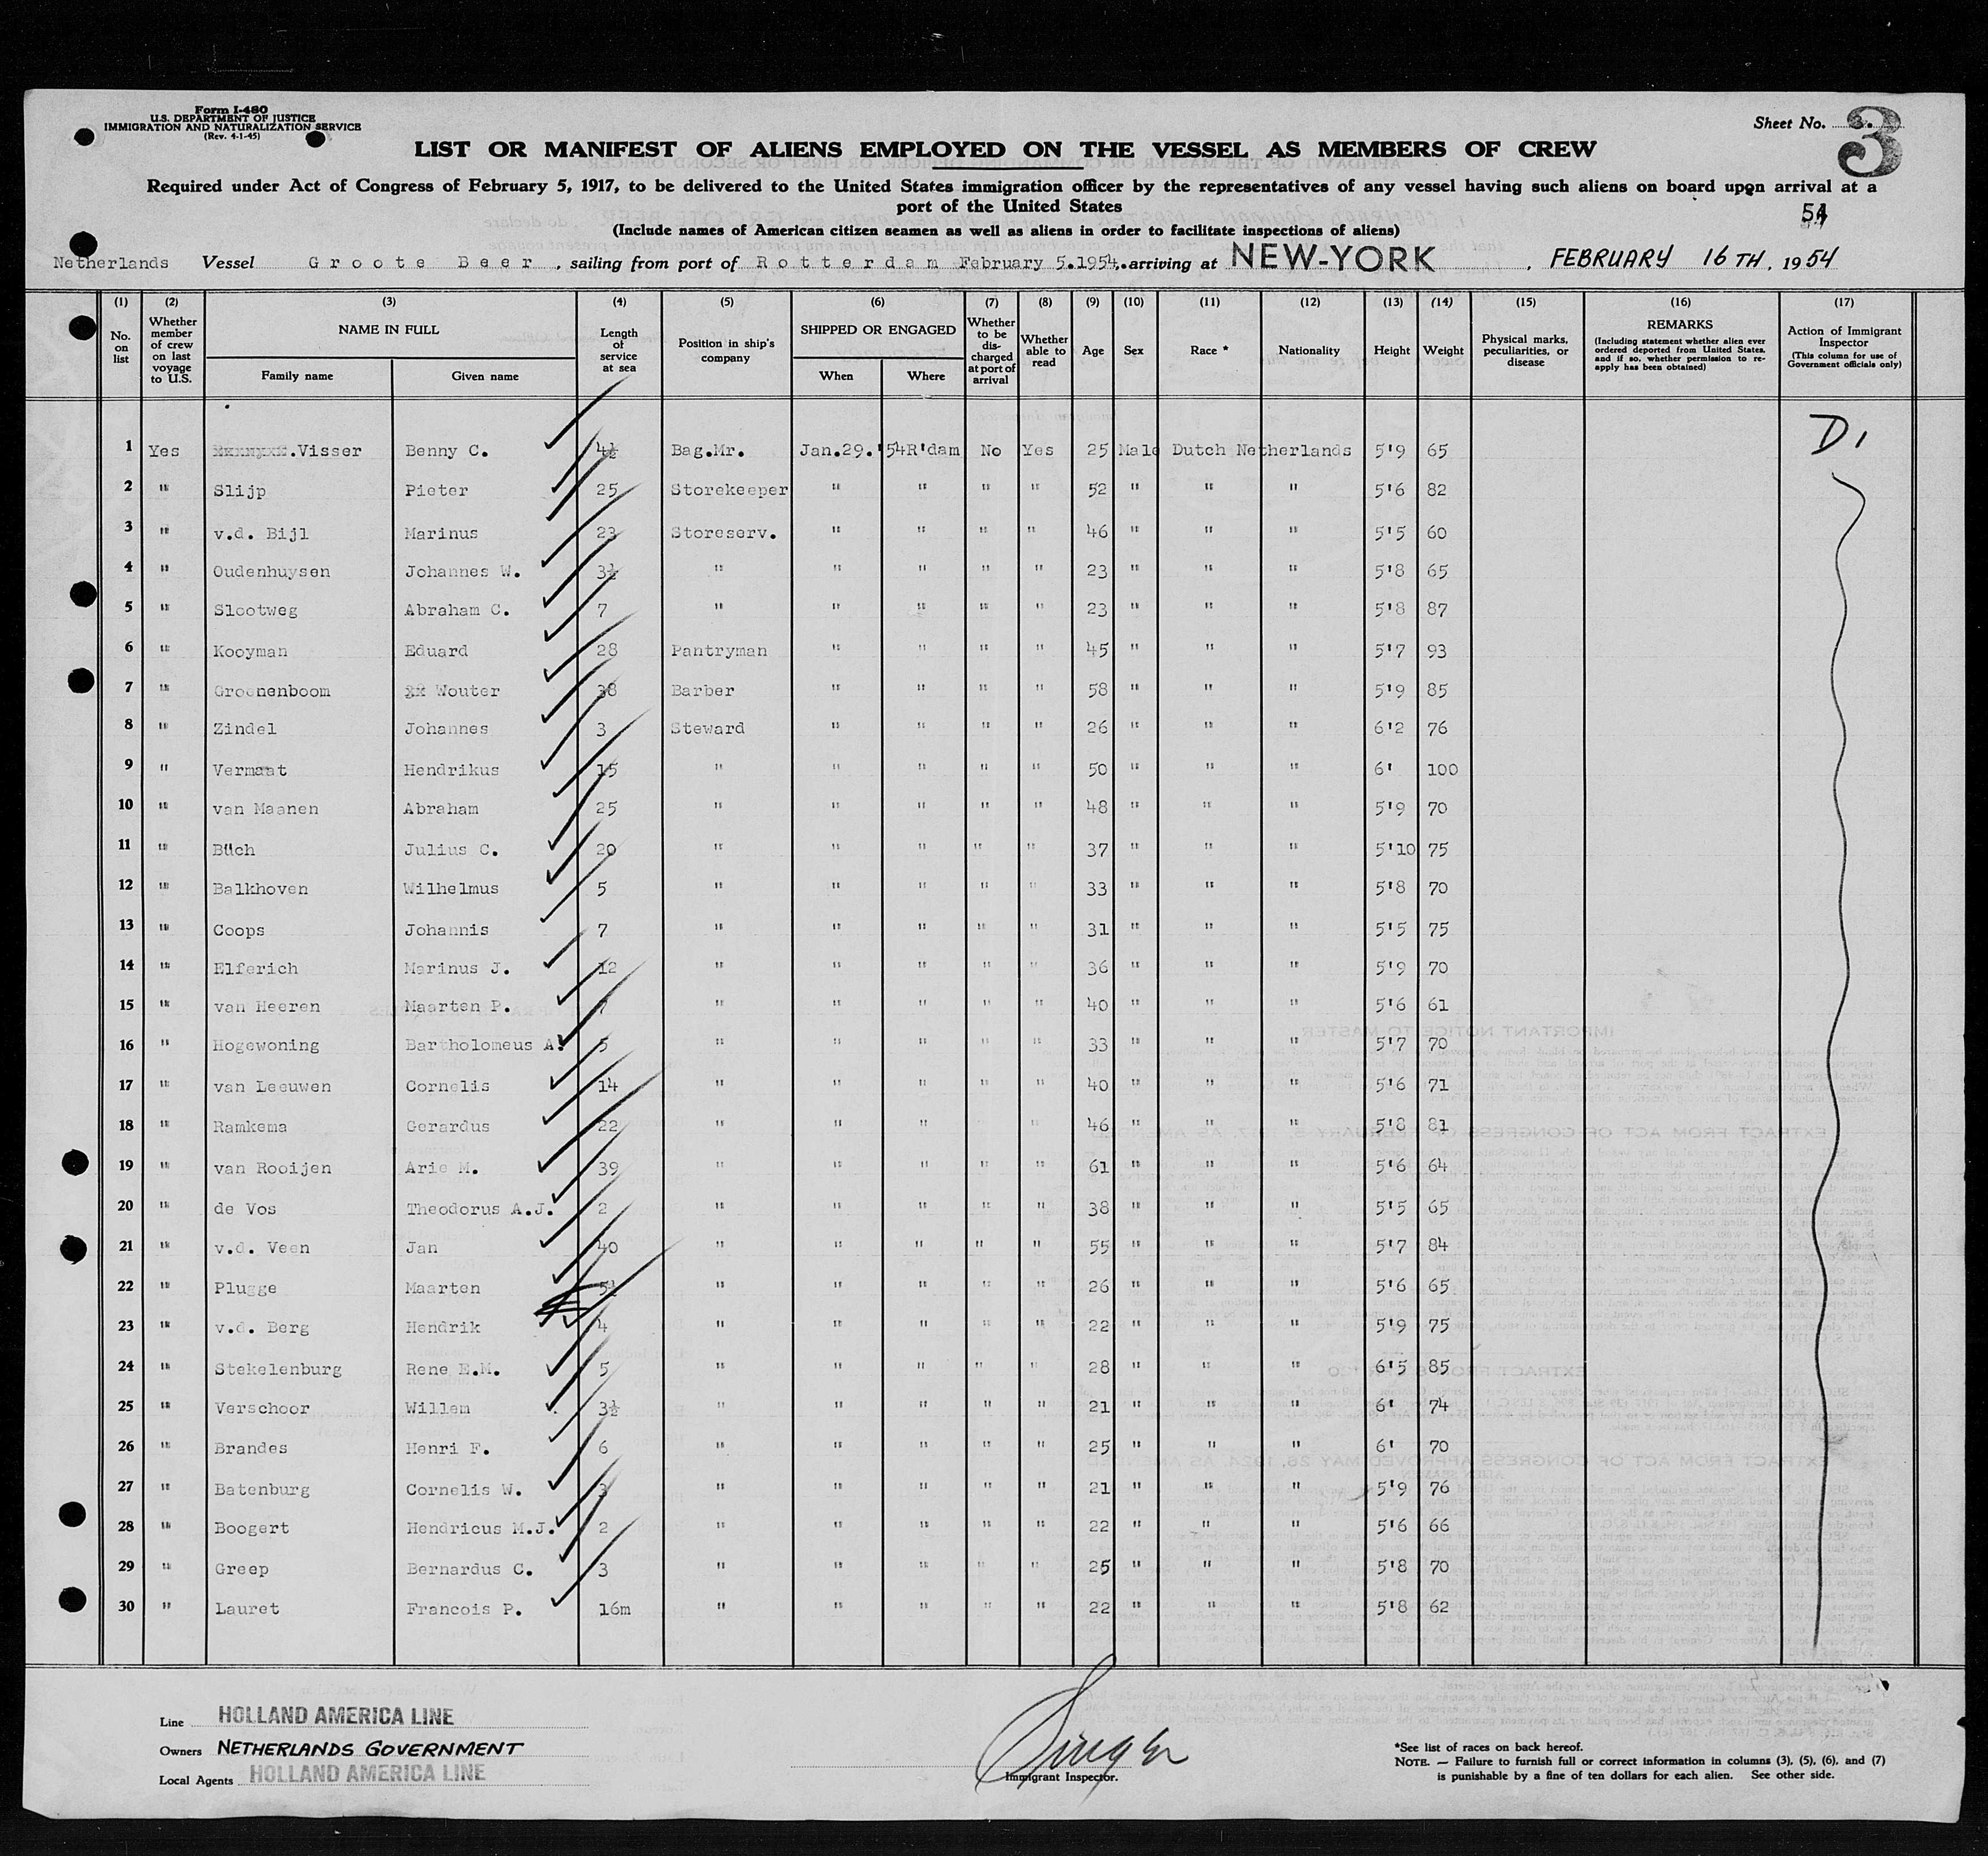 Form I-480
U.S. DEPARTMENT OF JUSTICE
IMMIGRATION AND NATURALIZATION SERVICE
(Rev. 4-1-45)
Sheet No. 3.
3
LIST OR MANIFEST OF ALIENS EMPLOYED ON THE VESSEL AS MEMBERS OF CREW
Required under Act of Congress of February 5, 1917, to be delivered to the United States immigration officer by the representatives of any vessel having such aliens on board upon arrival at a
port of the United States
54
(Include names of American citizen seamen as well as aliens in order to facilitate inspections of aliens)
Netherlands Vessel Groote Beer, sailing from port of Rotterdam February 5.1954, arriving at NEW-YORK, FEBRUARY 16TH, 1954
(1) (2) (3) (4) (5) (6) (7) (8) (9) (10) (11) (12) (13) (14) (15) (16) (17)
No. on list Whether member of crew on last voyage to U.S. NAME IN FULL Family name Given name Length of service at sea Position in ship's company SHIPPED OR ENGAGED When Where Whether to be discharged at port of arrival Whether able to read Age Sex Race * Nationality Height Weight Physical marks, peculiarities, or disease REMARKS (Including statement whether alien ever ordered deported from United States, and if so, whether permission to reapply has been obtained) Action of Immigrant Inspector (This column for use of Government officials only)
D1
1 Yes Visser Benny C. 4½ Bag.Mr. Jan.29.'54 R'dam No Yes 25 Male Dutch Netherlands 5'9 65
2 " Slijp Pieter 25 Storekeeper " " " " 52 " " " 5'6 82
3 " v.d. Bijl Marinus 23 Storeserv. " " " " 46 " " " 5'5 60
4 " Oudenhuysen Johannes W. 3½ " " " " " 23 " " " 5'8 65
5 " Slootweg Abraham C. 7 " " " " " 23 " " " 5'8 87
6 " Kooyman Eduard 28 Pantryman " " " " 45 " " " 5'7 93
7 " Groenenboom Wouter 38 Barber " " " " 58 " " " 5'9 85
8 " Zindel Johannes 3 Steward " " " " 26 " " " 6'2 76
9 " Vermaat Hendrikus 15 " " " " " 50 " " " 6' 100
10 " van Maanen Abraham 25 " " " " " 48 " " " 5'9 70
11 " Büch Julius C. 20 " " " " " 37 " " " 5'10 75
12 " Balkhoven Wilhelmus 5 " " " " " 33 " " " 5'8 70
13 " Coops Johannis 7 " " " " " 31 " " " 5'5 75
14 " Elferich Marinus J. 12 " " " " " 36 " " " 5'9 70
15 " van Heeren Maarten P. 7 " " " " " 40 " " " 5'6 61
16 " Hogewoning Bartholomeus A. 5 " " " " " 33 " " " 5'7 70
17 " van Leeuwen Cornelis 14 " " " " " 40 " " " 5'6 71
18 " Ramkema Gerardus 22 " " " " " 46 " " " 5'8 81
19 " van Rooijen Arie M. 39 " " " " " 61 " " " 5'6 64
20 " de Vos Theodorus A.J. 2 " " " " " 38 " " " 5'5 65
21 " v.d. Veen Jan 40 " " " " " 55 " " " 5'7 84
22 " Plugge Maarten 5½ " " " " " 26 " " " 5'6 65
23 " v.d. Berg Hendrik 4 " " " " " 22 " " " 5'9 75
24 " Stekelenburg Rene E.M. 5 " " " " " 28 " " " 6'5 85
25 " Verschoor Willem 3½ " " " " " 21 " " " 6' 74
26 " Brandes Henri F. 6 " " " " " 25 " " " 6' 70
27 " Batenburg Cornelis W. 3 " " " " " 21 " " " 5'9 76
28 " Boogert Hendricus M.J. 2 " " " " " 22 " " " 5'6 66
29 " Greep Bernardus C. 3 " " " " " 25 " " " 5'8 70
30 " Lauret Francois P. 16m " " " " " 22 " " " 5'8 62
Line HOLLAND AMERICA LINE
Owners NETHERLANDS GOVERNMENT
Local Agents HOLLAND AMERICA LINE
Singer
Immigrant Inspector.
*See list of races on back hereof.
NOTE. — Failure to furnish full or correct information in columns (3), (5), (6), and (7)
is punishable by a fine of ten dollars for each alien. See other side.